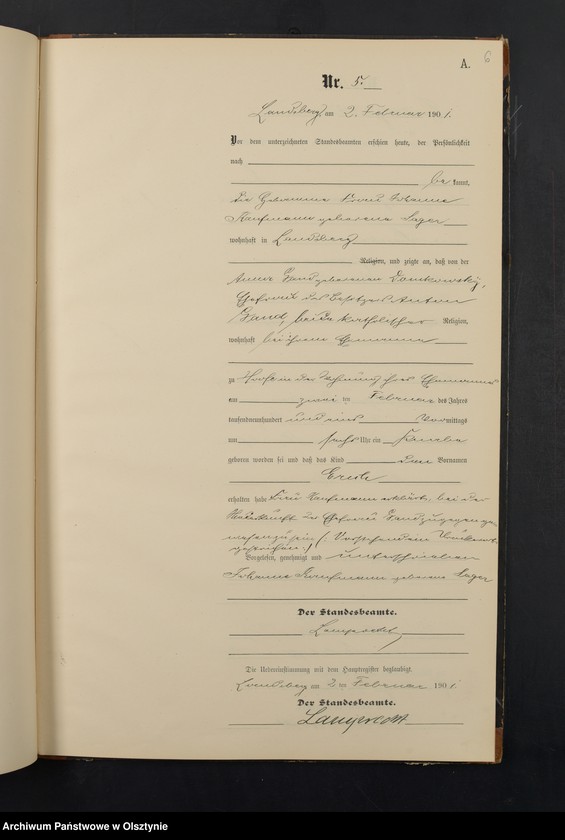 A. 6
Nr. 5.
Landsberg am 2. Februar 1901.
Vor dem unterzeichneten Standesbeamten erschien heute, der Persönlichkeit
nach
be kannt,
die Hebamme Frau Johanna
Kaufmann geborene Sager
wohnhaft in Landsberg
Religion, und zeigte an, daß von der
Anna Gand geborenen Dankowsky,
Ehefrau des Besitzers Anton
Gand, beide katholischer Religion,
wohnhaft bei ihrem Ehemanne
zu Hoofe in der Wohnung ihres Ehemannes
am zwei ten Februar des Jahres
tausendneunhundert und eins Vormittags
um sechs Uhr ein Knabe
geboren worden sei und daß das Kind den Vornamen
Erich
erhalten habe. Frau Kaufmann erklärte, bei der
Niederkunft der Ehefrau Gand zugegen ge-
wesen zu sein (: Vorstehenden Druckworte
gestrichen :)
Vorgelesen, genehmigt und unterschrieben
Johanna Kaufmann geborene Sager
Der Standesbeamte.
Lamprecht
Die Uebereinstimmung mit dem Hauptregister beglaubigt.
Landsberg am 2 ten Februar 1901.
Der Standesbeamte.
Lamprecht
Archiwum Państwowe w Olsztynie